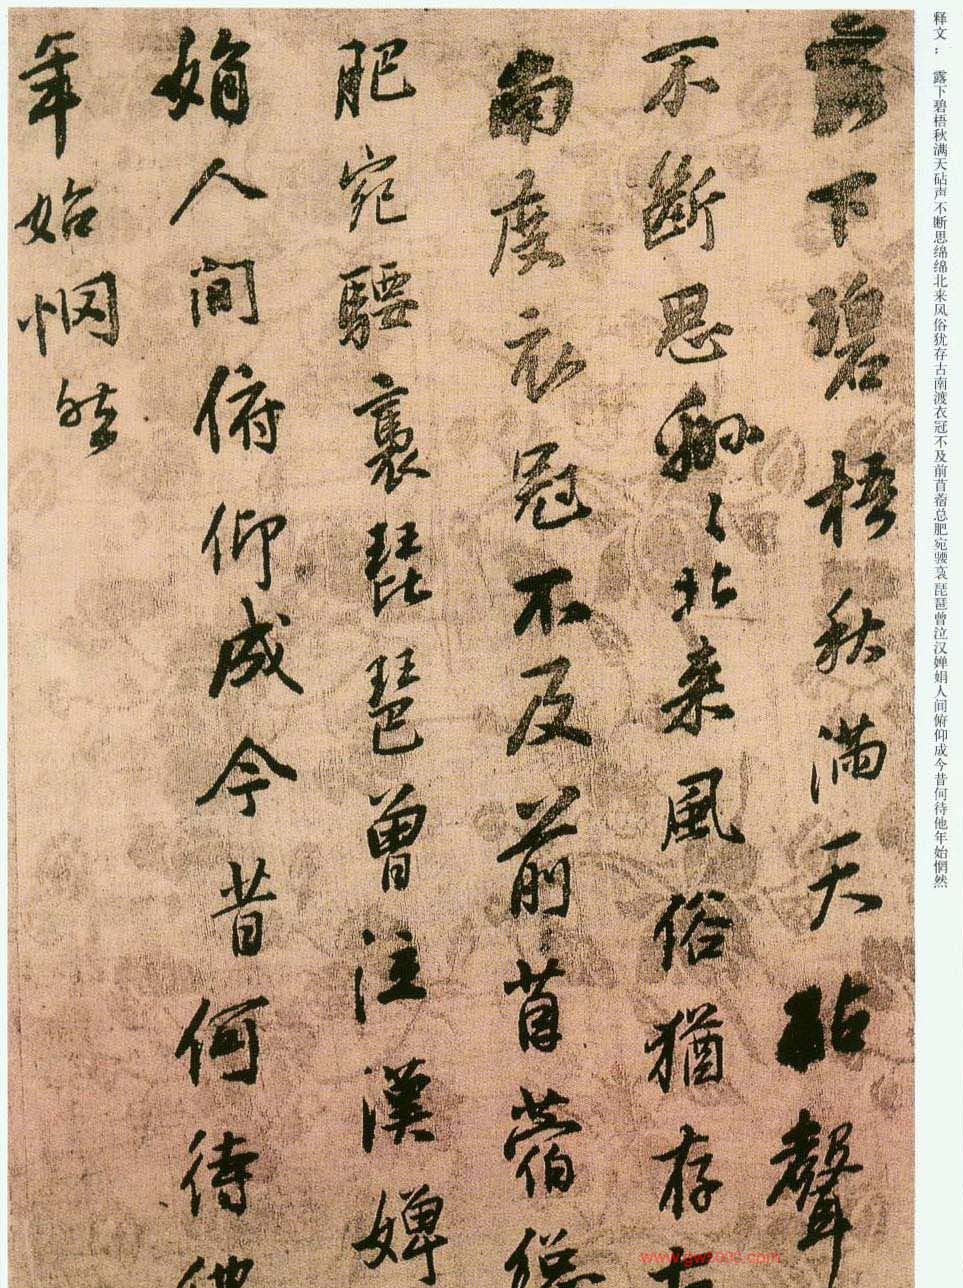 释文： 露下碧梧秋满天砧声不断思绵绵北来风俗犹存古南渡衣冠不及前苜蓿总肥宛骥袅琵琶曾泣汉婵娟人间俯仰成今昔何待他年始惘然
露下碧梧秋滿天砧聲
不斷思綿〻北来風俗猶存古
南度衣冠不及前苜蓿總
肥宛騕裹琵琶曾泣漢婵
娟人间俯仰成今昔何待他
年始惘然